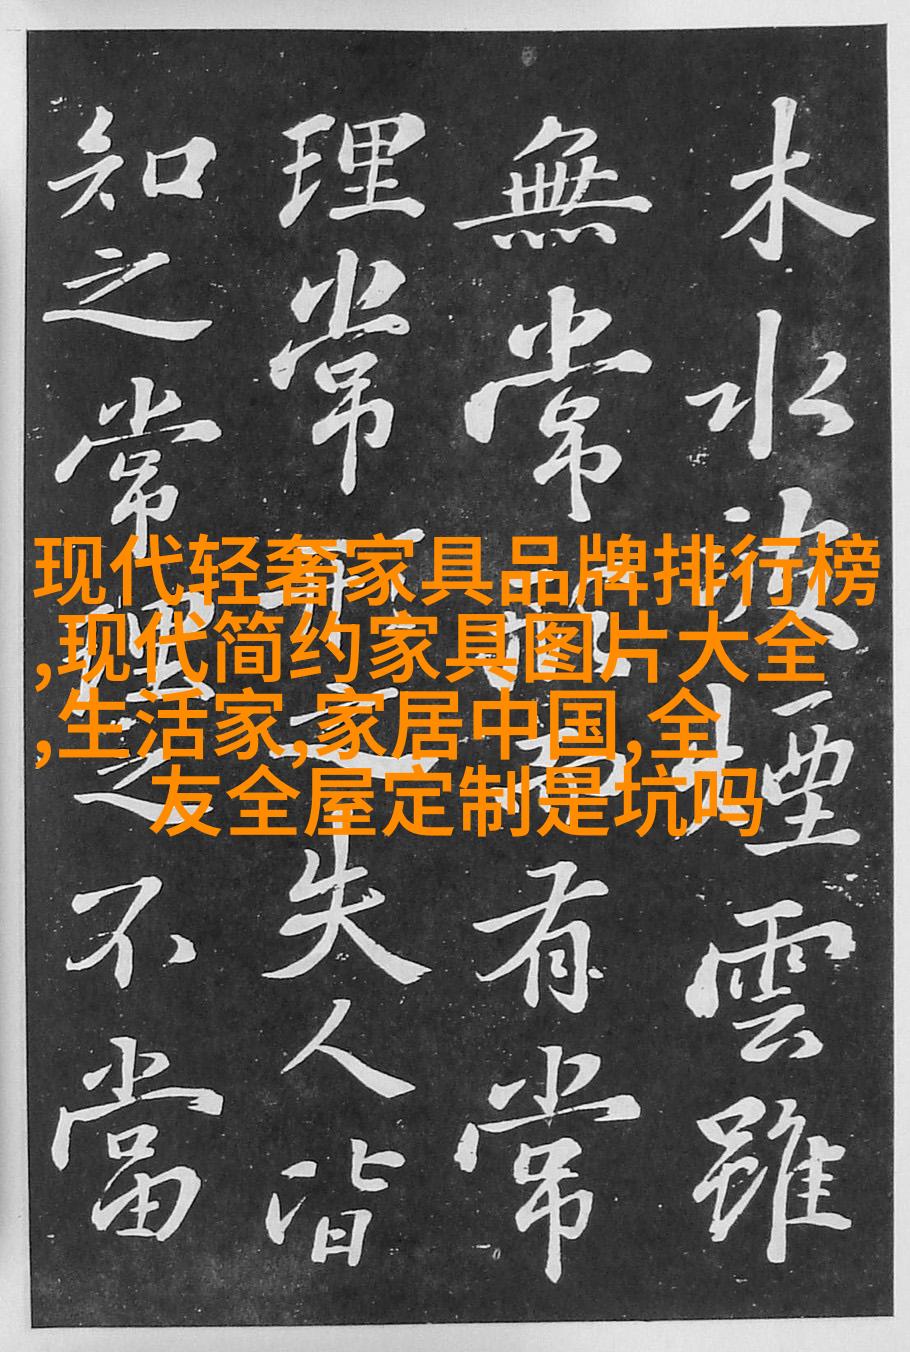 木水波煙雲雖
無常有常
理常形之失人皆
知之常理之不當
现代轻奢家具品牌排行榜
,现代简约家具图片大全
,生活家,家居中国,全
友全屋定制是坑吗